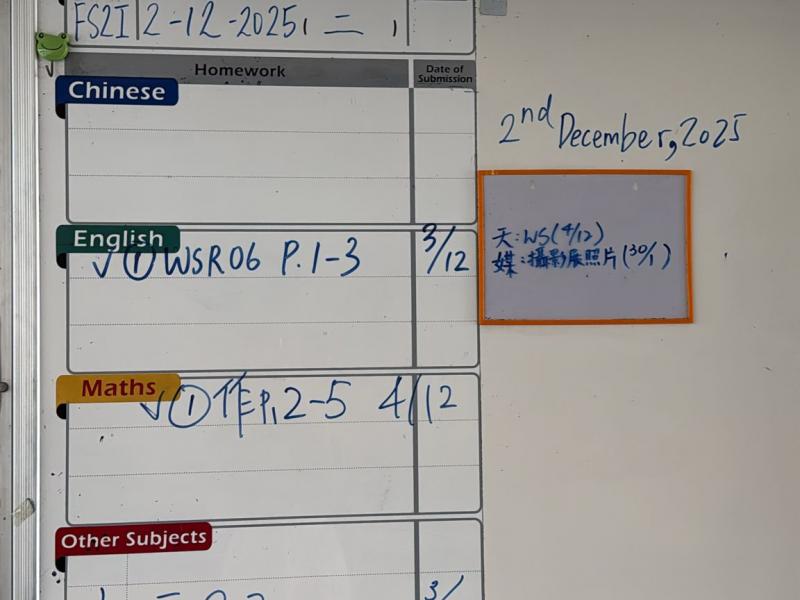 FS2I 2-12-2025 (二)
Homework
Date of
Submission
Chinese
English
✓ ① WSR06 P.1-3 3/12
Maths
✓ ① 作P.2-5 4/12
Other Subjects
3/
2nd December, 2025
天:WS(4/12)
媒:攝影展照片(30/1)